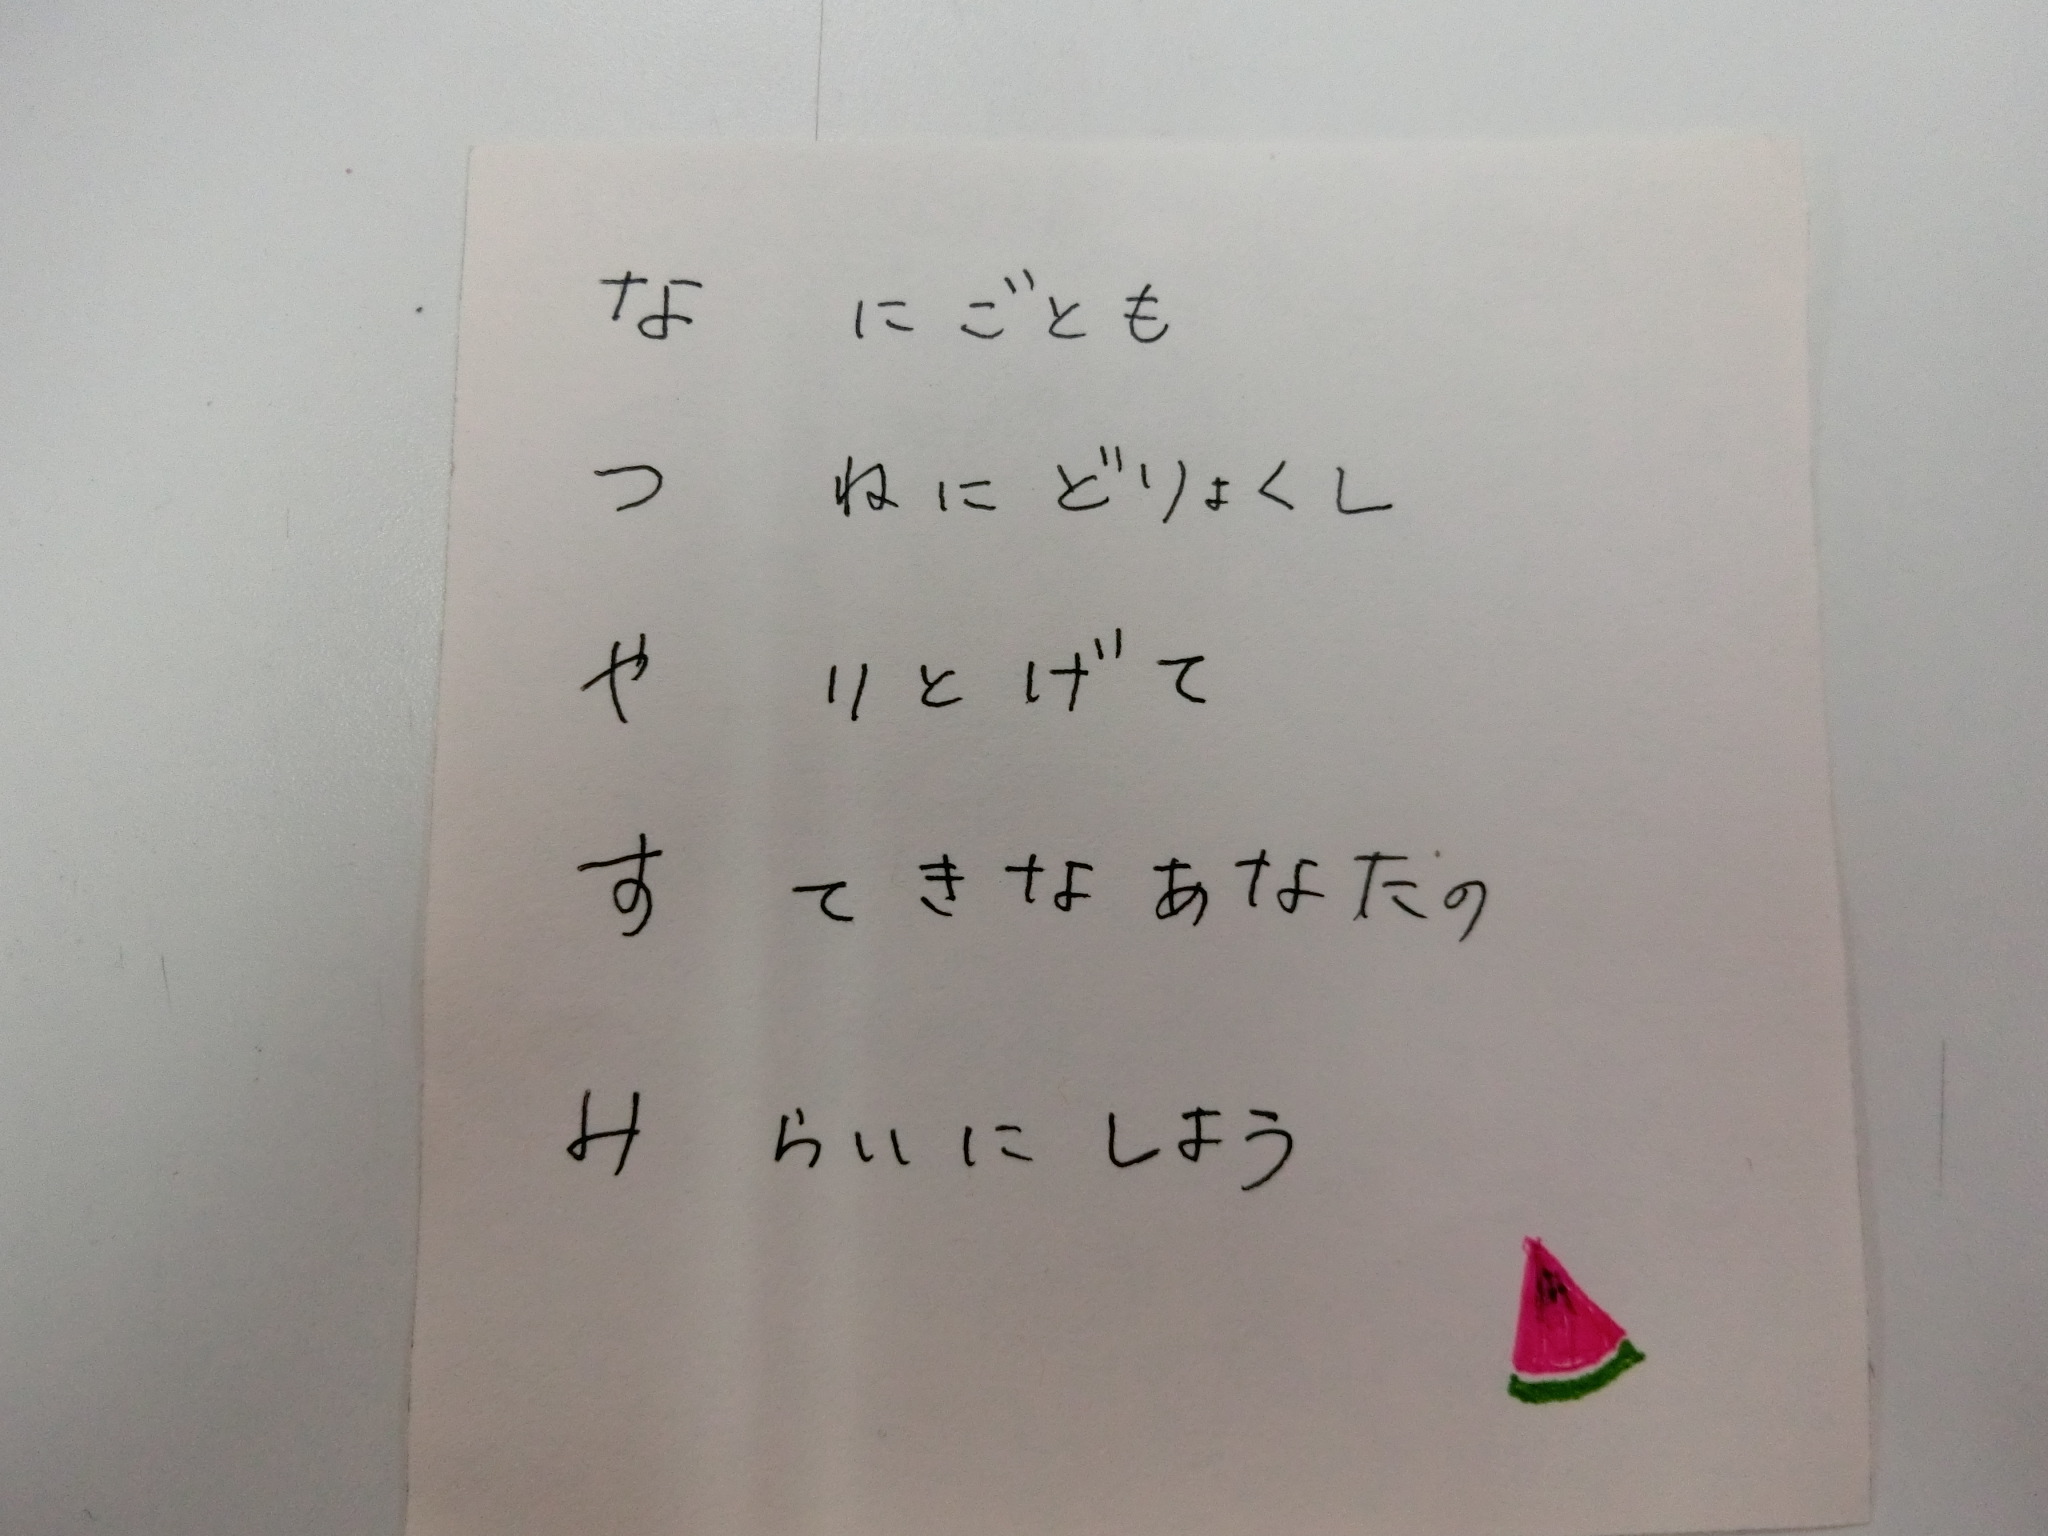 な にごとも
つ ねにどりょくし
や りとげて
す てきなあなたの
み らいにしよう